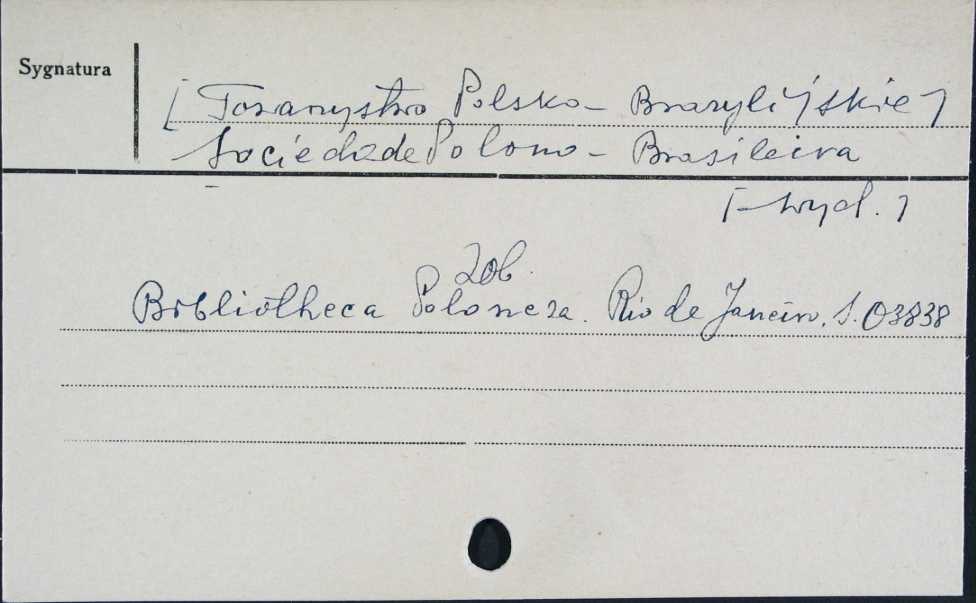 Sygnatura
[Towarzystwo Polsko-Brazylijskie]
Sociedade Polono-Brasileira
[-wyd.]
Zob.
Bibliotheca Poloneza. Rio de Janeiro. S. 03838